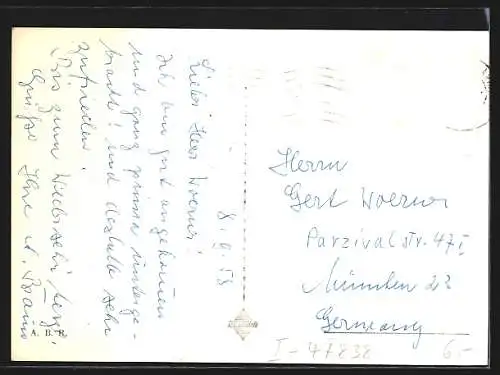 8. 9. 58
Lieber Herr Woerner!
Ich bin gut angekommen
und ganz prima unterge-
bracht! und deshalb sehr
zufrieden.
Bis zum Wiedersehn herzl.
Grüsse Ihre
A. B. K.
Herrn
Gert Woerner
Parzivalstr. 47 I
München 23
Germany
I-47838
6.-